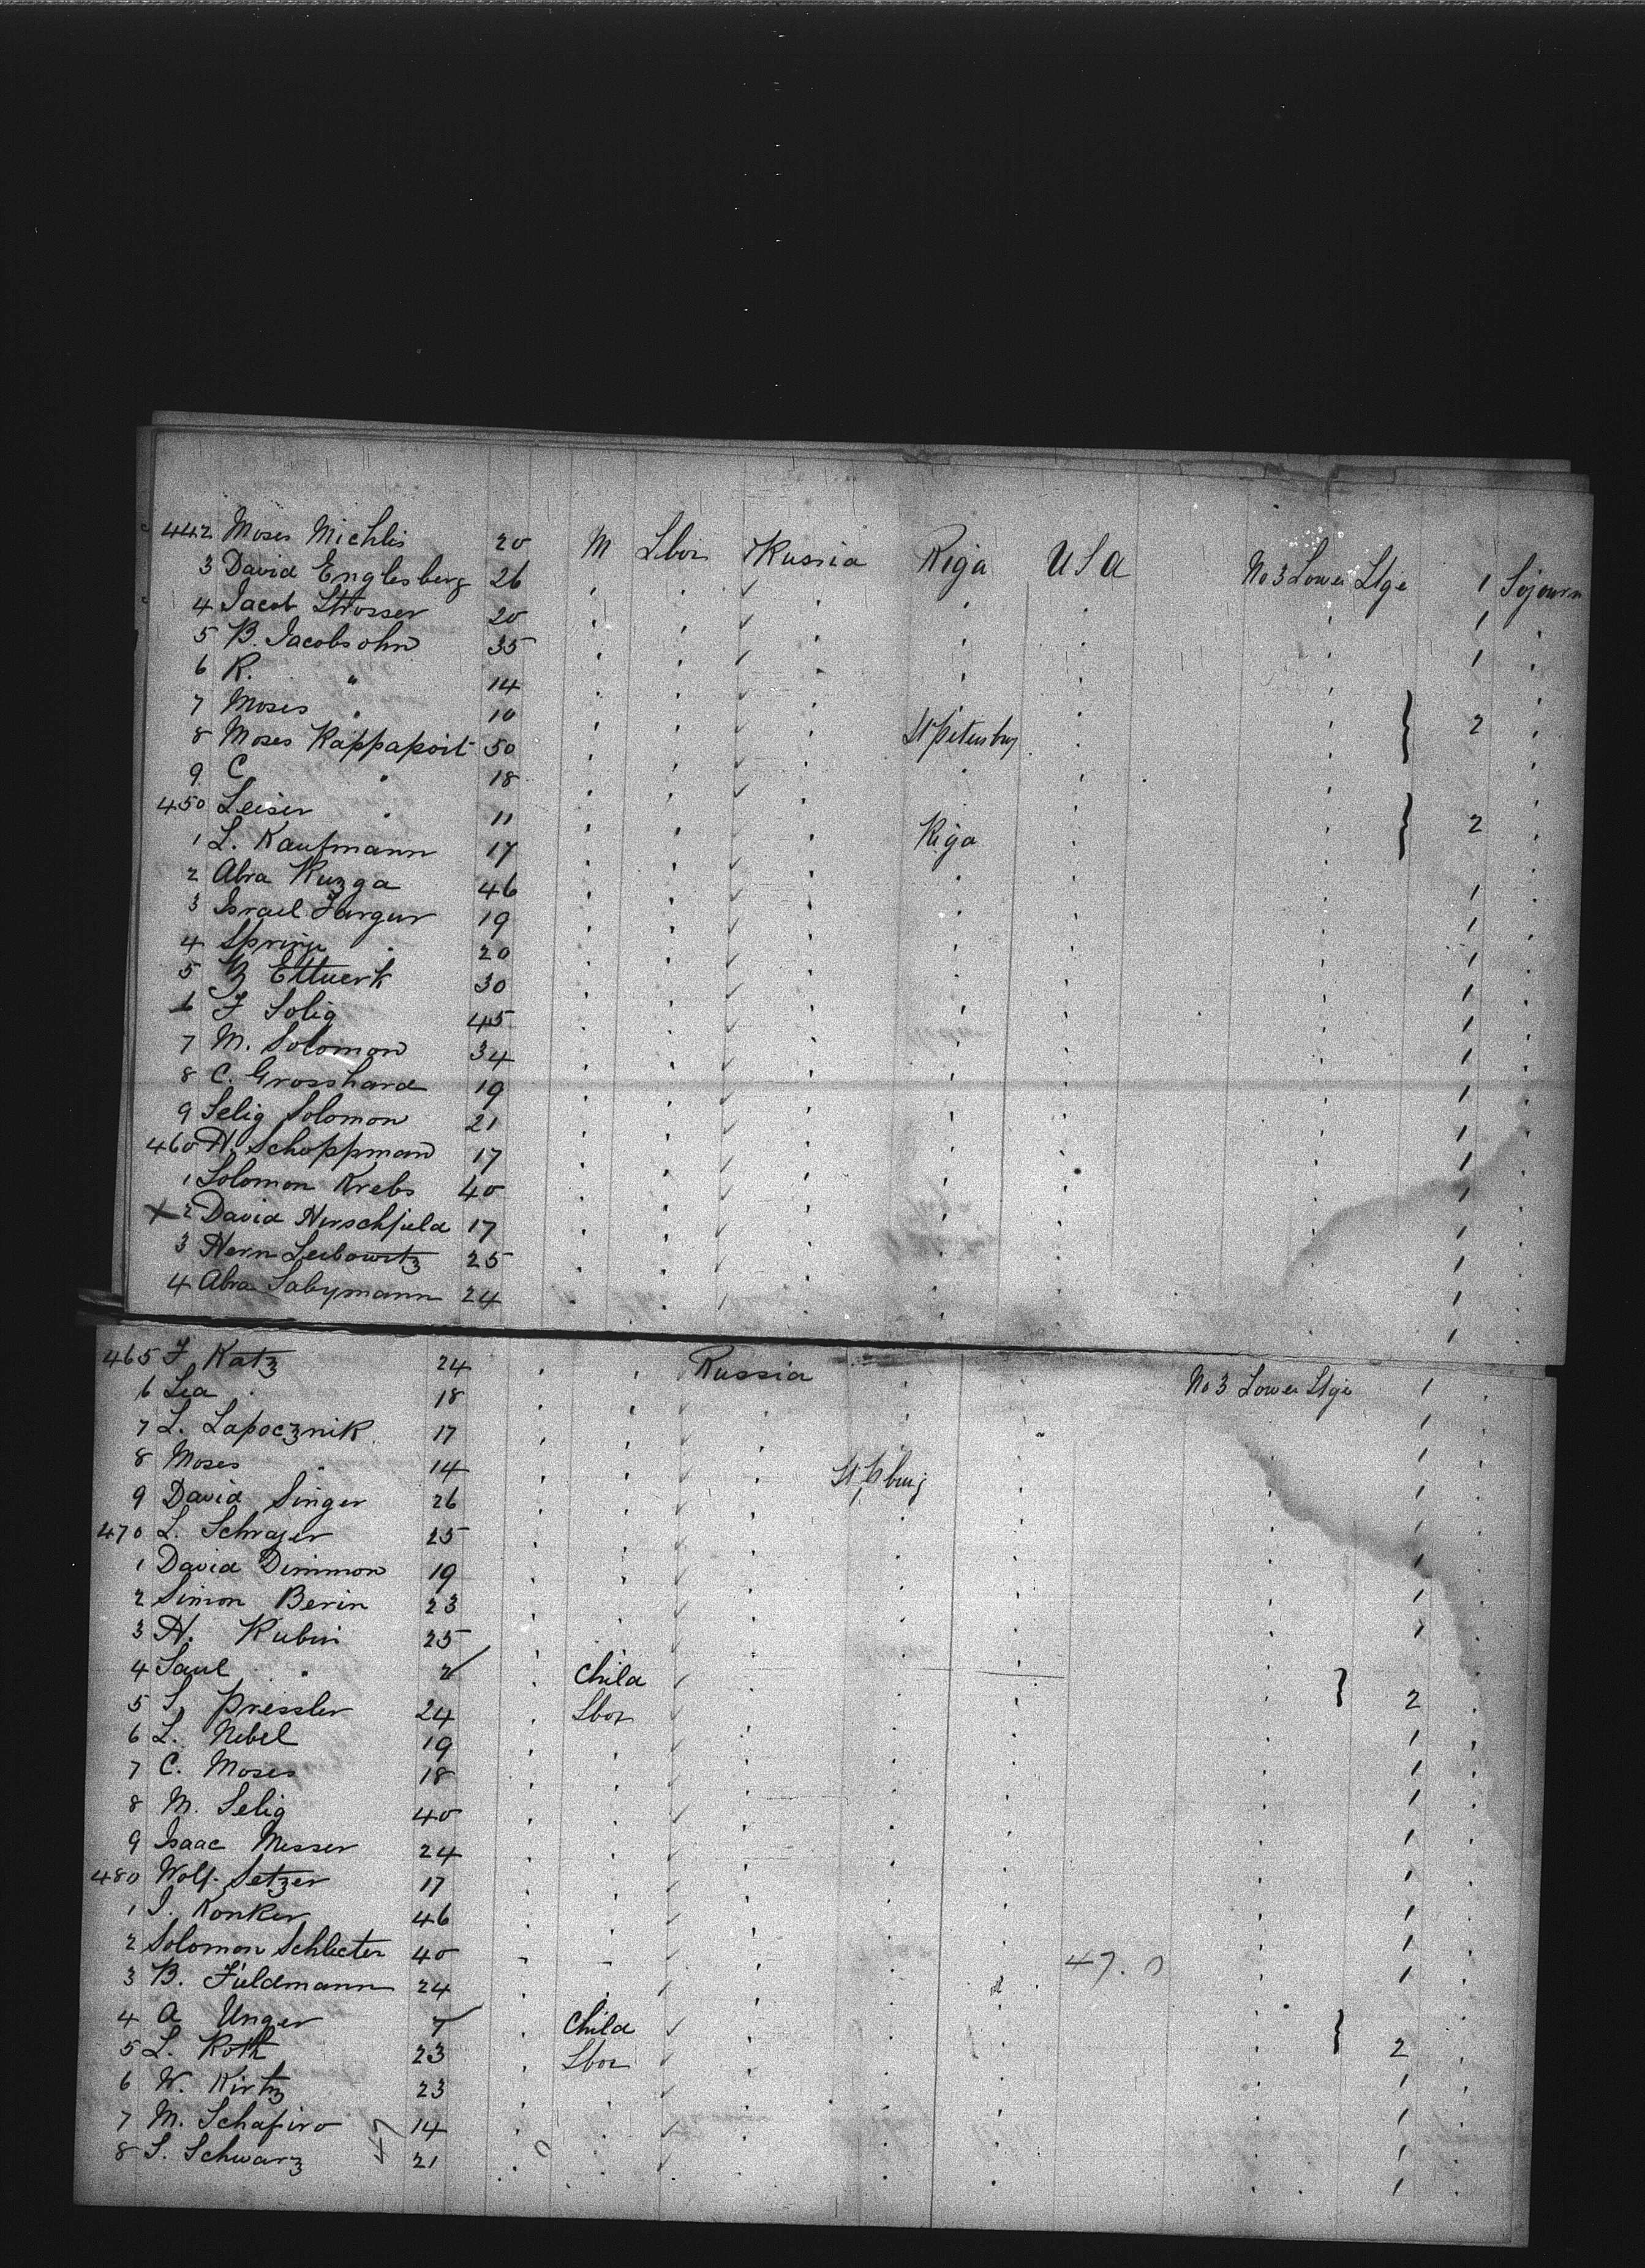 442 Moses Michlis 20 M Lbor Russia Riga USA No 3 Lower Stge 1 Sojourn
3 David Englesberg 26 1
4 Jacob Strosser 20 1
5 B. Jacobsohn 35
6 R. " 14 2
7 Moses " 10 St Petersburg
8 Moses Rappaport 50
9 C. " 18 2
450 Leiser " 11 Riga
1 L. Kaufmann 17 1
2 Abra Kuzga 46 1
3 Israel 19 1
4 20 1
5 B 30 1
6 J Solig 45 1
7 M. Solomon 34 1
8 C. Grosshard 19 1
9 Selig Solomon 21 1
460 H. Schoppman 17 1
1 Solomon Krebs 40 1
X 2 David Hirschfield 17 1
3 Hern Leibowitz 25 1
4 Abra 24 1
465 J Katz 24 Russia No 3 Lower Stge 1
6 Lea " 18 1
7 L. Lapocznik 17 1
8 Moses " 14 St Pburg 1
9 David Singer 26 1
470 L. Schrajer 25 1
1 David Dimmon 19 1
2 Simon Berin 23 1
3 H. Rubin 25
4 Saul " 2 Child } 2
5 S. Pressler 24 Lbor 1
6 L. Nebel 19 1
7 C. Moses 18 1
8 M. Selig 40 1
9 Isaac Messer 24 1
480 Wolf Setzer 17 1
1 I. Konker 46 1
2 Solomon Schlecter 40 1
3 B. Fieldmann 24 47.0
4 A Unger 7 Child } 2
5 L. Roth 23 Lbor 1
6 W. Kirtz 23 1
7 M. Schapiro 14 1
8 S. Schwarz 47 21 1